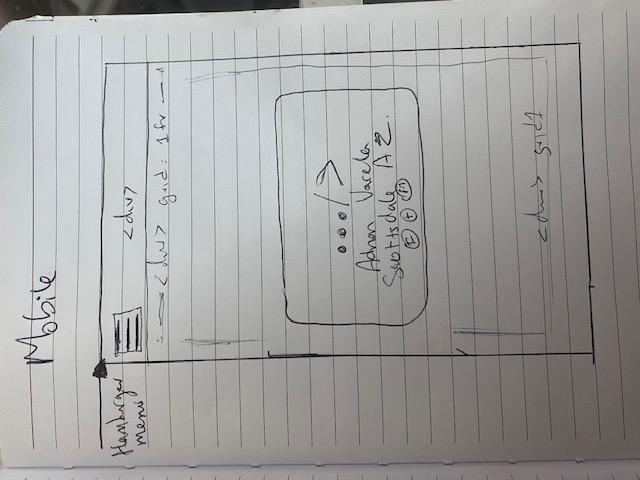 Mobile
Hamburger
menu
<div>
<div> grid: 1fr
.../>
Adnan Varela
Scottsdale AZ.
F t in
<div> grid1